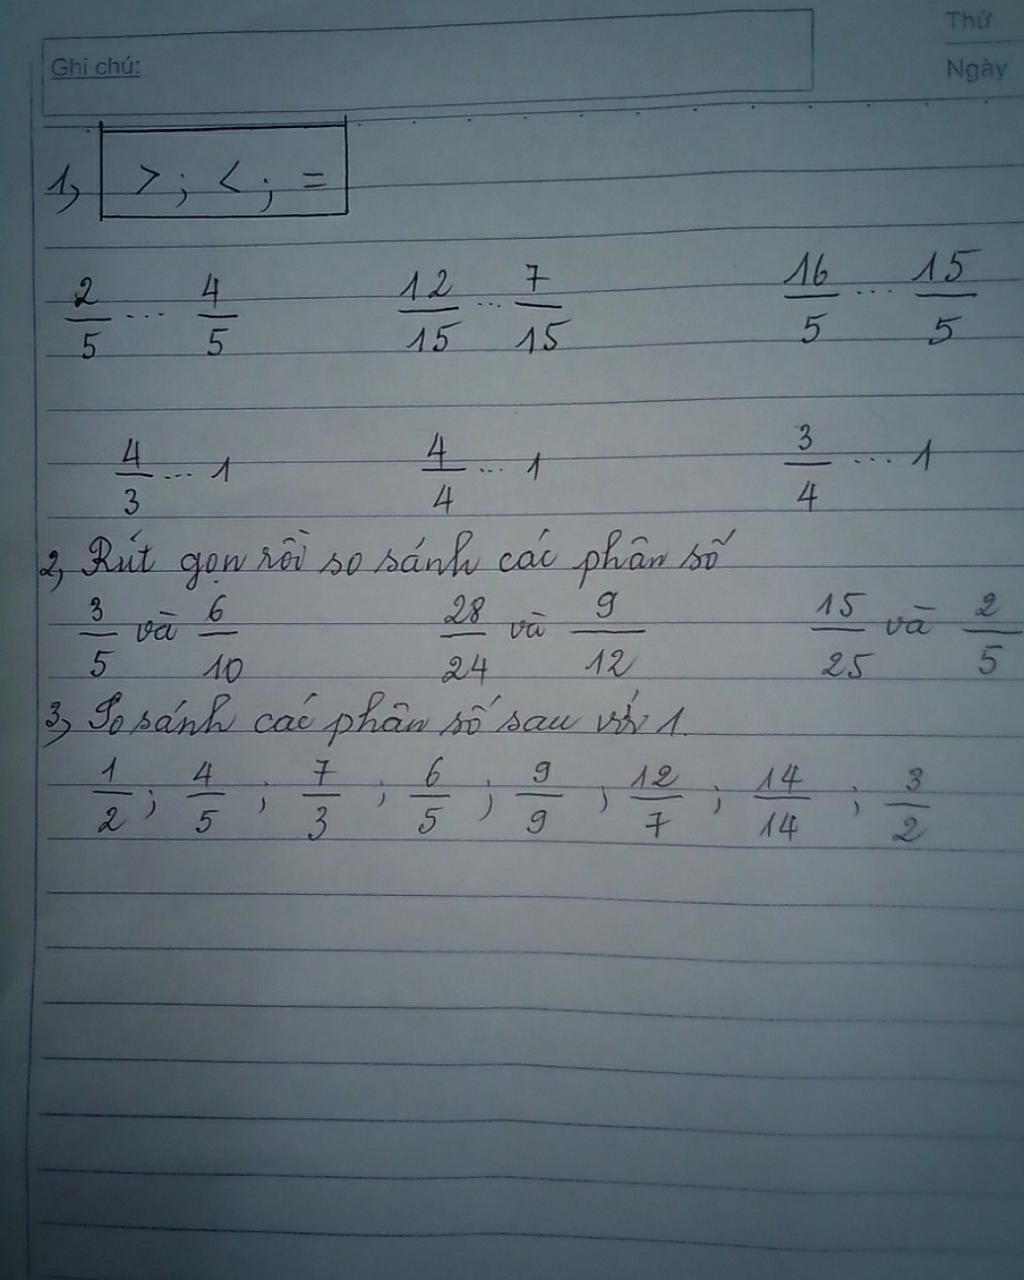 Thứ
Ghi chú:
Ngày
1, > ; < ; =
2/5 ... 4/5 12/15 ... 7/15 16/5 ... 15/5
4/3 ... 1 4/4 ... 1 3/4 ... 1
2, Rút gọn rồi so sánh các phân số
3/5 và 6/10 28/24 và 9/12 15/25 và 2/5
3, So sánh các phân số sau với 1.
1/2 ; 4/5 ; 7/3 ; 6/5 ; 9/9 ; 12/7 ; 14/14 ; 3/2